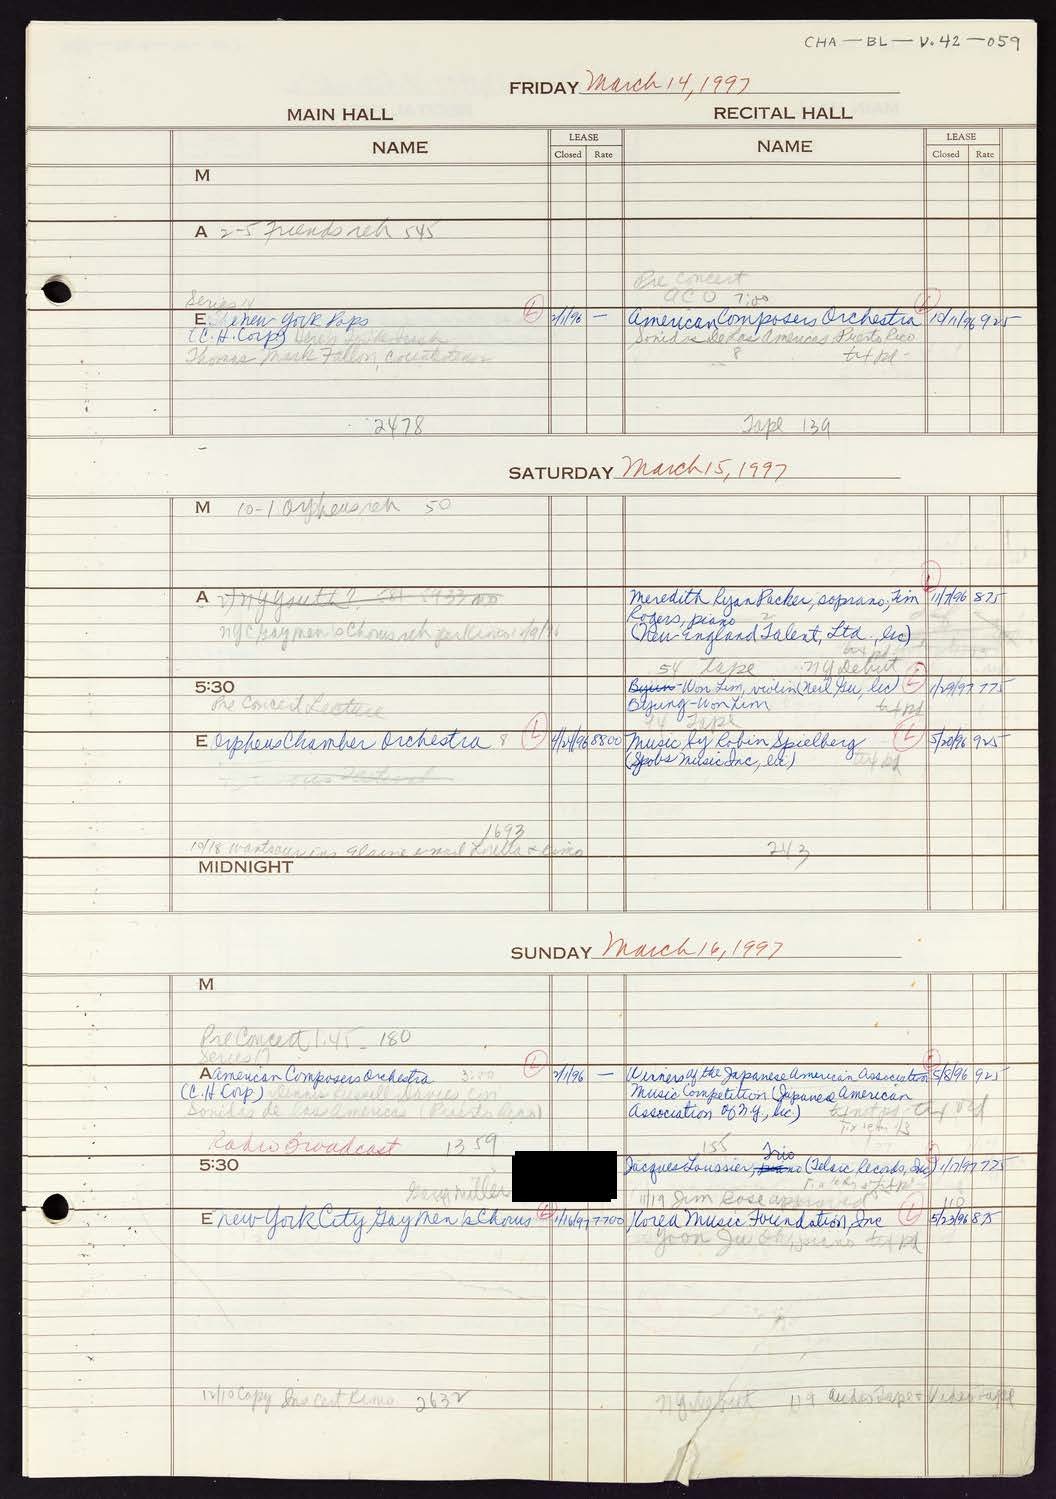 CHA-BL-V.42-059
FRIDAY March 14, 1997
MAIN HALL
RECITAL HALL
NAME
LEASE
Closed Rate
NAME
LEASE
Closed Rate
M
A 2-5 Friends reh 545
Pre Concert
ACO 7:00
Series
E New York Pops
L
2/1/96 —
American Composers Orchestra
L
10/11/96 925
(C.H. Corp)
Sonidos De Las Americas Puerto Rico
Thomas Mark Fallon, countertenor
8
txt pd
2478
Tape 139
SATURDAY March 15, 1997
M 10-1 Orpheus reh 50
A NY Youth?
NYC Gay men's Chorus reh
Meredith Ryan Packer, soprano, Tim
11/7/96 875
Rogers, piano
(New England Talent, Ltd., lic)
54 tape NY Debut
5:30
Pre Concert Lecture
Byun-Won Lim, violin (Neil Gu, lic)
L
1/29/97 775
Byung-Won Lim
txt pd
74 Tape
E Orpheus Chamber Orchestra 8
L
8800
Music by Robin Spielberg
L
5/20/96 925
(Spobs Music Inc, lic)
txt pd
1693
10/18 Loretta
243
MIDNIGHT
SUNDAY March 16, 1997
M
Pre Concert 1:45 - 180
Series
A American Composers Orchestra 3:00
L
2/1/96 —
Winners of the Japanese American Association
5/8/96 925
(C.H Corp) Dennis Russell Davies Con
Music Competition (Japanese American
Sonidos de Las Americas (Puerto Rico)
Association of N.Y., lic)
Radio Broadcast 1359
155
5:30
Trio
Jacques Loussier, piano (Telarc Records, Inc)
1/17/97 775
Miller
11/19 Jim Rose approved
110
E New York City Gay Men's Chorus
L
1/16/97 7700
Korea Music Foundation, Inc
L
5/23/96 875
Yoon Ju Oh, piano txt pd
12/10 Copy Kimo 2632
NY Debut 119 Audio Tape + Video Tape